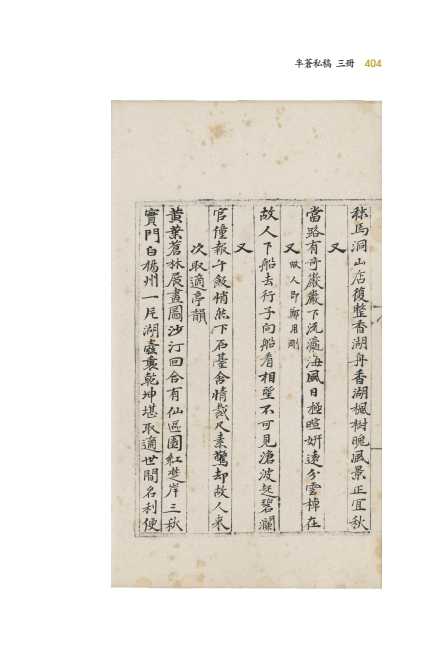 半蒼私稿 三冊 404
秣馬洞山店復整香湖舟香湖楓樹晚風景正宜秋
又
當路有奇巖巖下流滄海風日極暄妍遠分雲棹在
又 故人即鄭月剛
故人下船去行子向船看相望不可見滄波起碧瀾
又
官僮報午飯悄然下石臺含情裁尺素驚却故人來
次取適亭韻
黃葉蒼林展畫圖沙汀回合有仙區園紅楚岸三秋
實門白楊州一片湖壺裏乾坤堪取適世間名利便